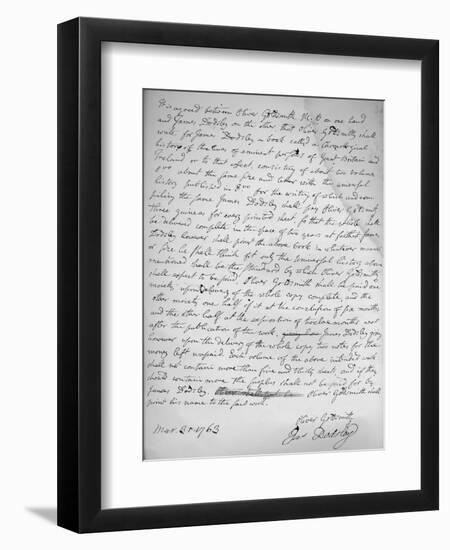 It is agreed between Oliver Goldsmith M.B on one hand
and James Dodsley on the other that Oliver Goldsmith shall
write for James Dodsley a book called a Chronological
history of the lives of eminent persons of Great Britain and
Ireland or to that effect, consisting of about two volumes
8vo about the same size and letter with the universal
history published in 8vo for the writing of which and com
piling the same James Dodsley shall pay Oliver Goldsmith
three guineas for every printed sheet, so that the whole shall
be delivered complete in the space of two years at farthest James
Dodsley however shall print the above book in whatever manner
or size he shall think fit only the Universal history above
mentioned shall be the standard by which Oliver Goldsmith
shall expect to be paid. Oliver Goldsmith shall be paid one
moiety upon delivery of the whole copy complete, and the
other moiety one half of it at the conclusion of six months
and the other half at the expiration of twelve months next
after the publication of the work, James Dodsley giving
however upon the delivery of the whole copy two notes for the
money left unpaid. Each volume of the above intended work
shall not contain more than five and thirty sheets, and if they
should contain more the surplus shall not be paid for by
James Dodsley. Oliver Goldsmith shall
print his name to the said work.
Oliver Goldsmith
Jas Dodsley
Mar. 31. 1763